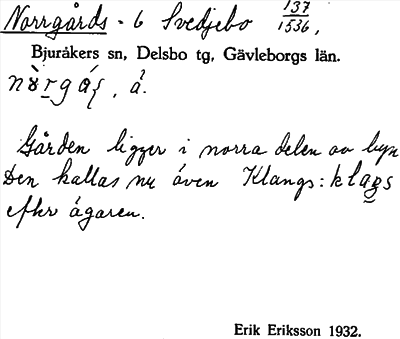 Norrgårds - 6 Svedjebo 137/1536,
Bjuråkers sn, Delsbo tg, Gävleborgs län.
Gården ligger i norra delen av byn
Den kallas nu även Klangs:
efter ägaren.
Erik Eriksson 1932.